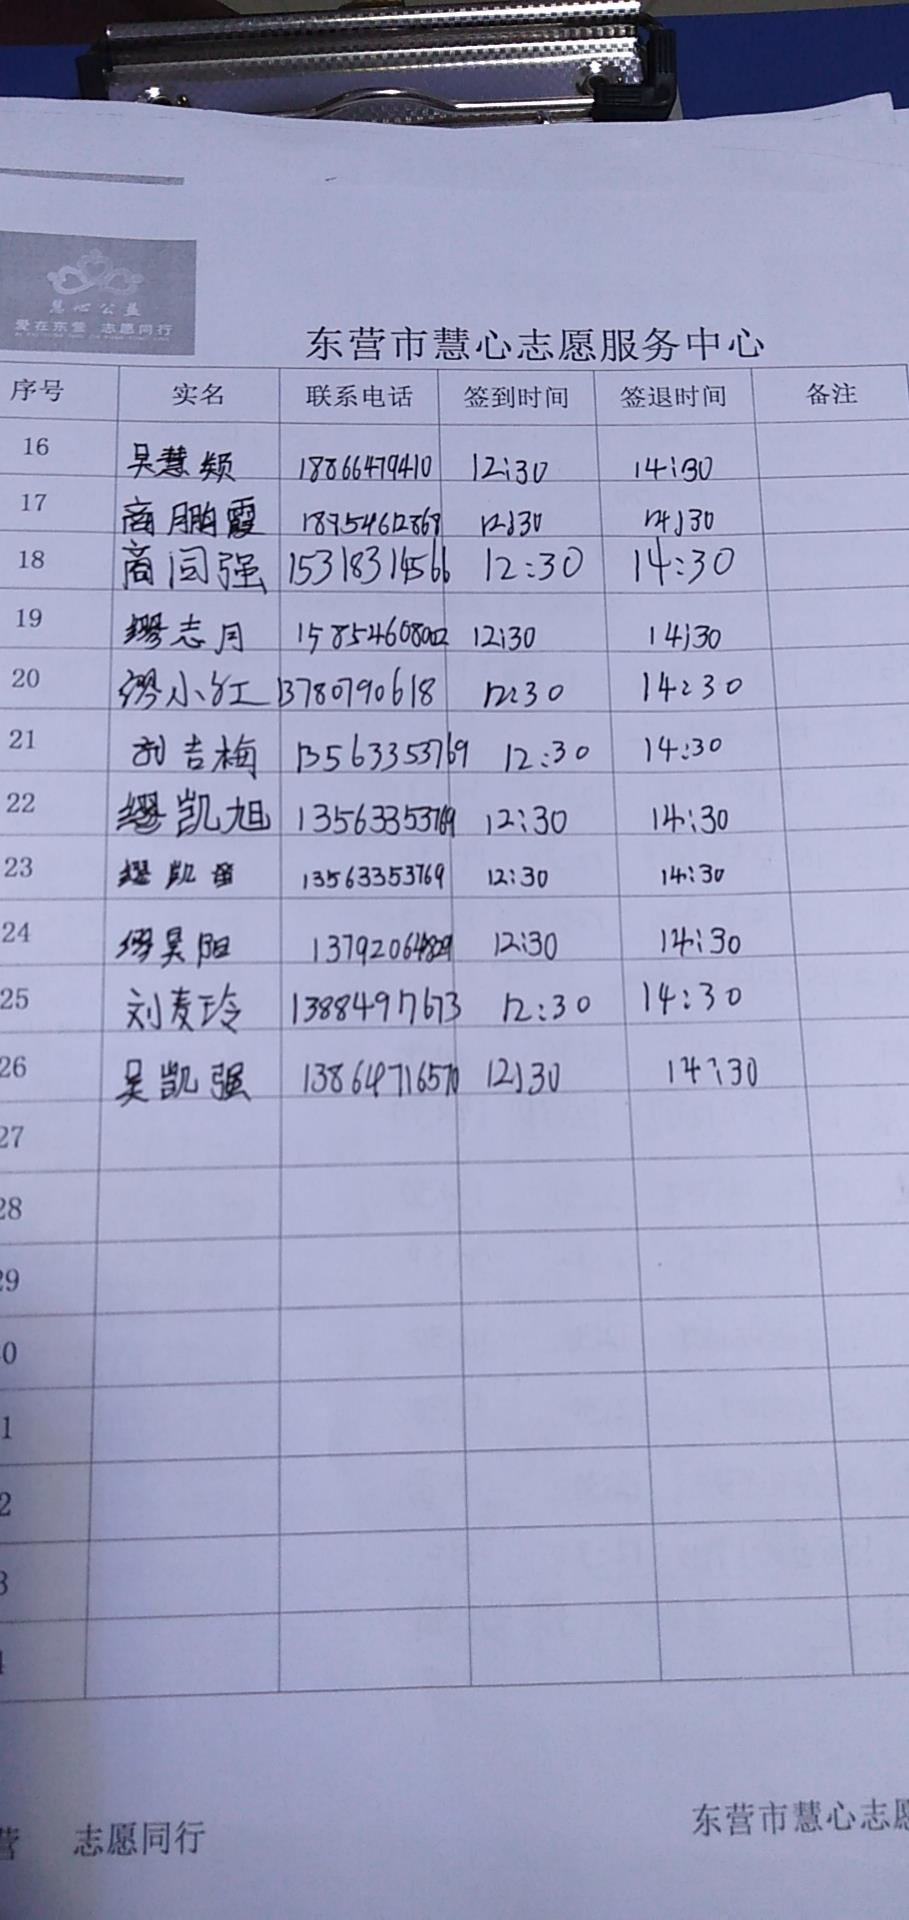 慧心公益
爱在东营 志愿同行
东营市慧心志愿服务中心
序号 实名 联系电话 签到时间 签退时间 备注
16 吴慧颖 18866479410 12:30 14:30
17 商鹏霞 18954612869 12:30 14:30
18 商闫强 15318314566 12:30 14:30
19 缪志月 15854608002 12:30 14:30
20 缪小红 13780790618 12:30 14:30
21 刘吉梅 13563353769 12:30 14:30
22 缪凯旭 13563353769 12:30 14:30
23 缪凯 13563353769 12:30 14:30
24 缪昊阳 12:30 14:30
25 刘麦玲 13884917673 12:30 14:30
26 吴凯强 13864716570 12:30 14:30
27
28
29
0
1
2
3
4
营 志愿同行 东营市慧心志愿